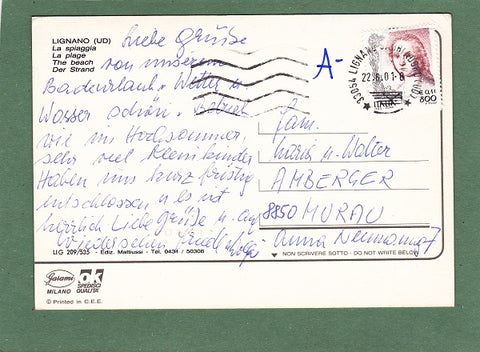 LIGNANO (UD)
La spiaggia
La plage
The beach
Der Strand
Liebe Grüße
von unserem
Badeurlaub. Wetter u.
Wasser schön. Betrieb
wie im Hochsommer,
sehr viel Kleinkinder
Haben uns kurzfristig
entschlossen u es ist
herrlich Liebe Grüße u. auf
Wiedersehen
A-
33054 LIGNANO
22.6.01-8
ITALIA
800
Fam.
Maria u. Walter
AMBERGER
8850 MURAU
Anna Neumann
LIG 209/535 - Ediz. Mattiussi - Tel. 0431 / 50306
NON SCRIVERE SOTTO - DO NOT WRITE BELOW
Garami
MILANO
OK
SPEDISCI
QUALITA'
© Printed in C.E.E.